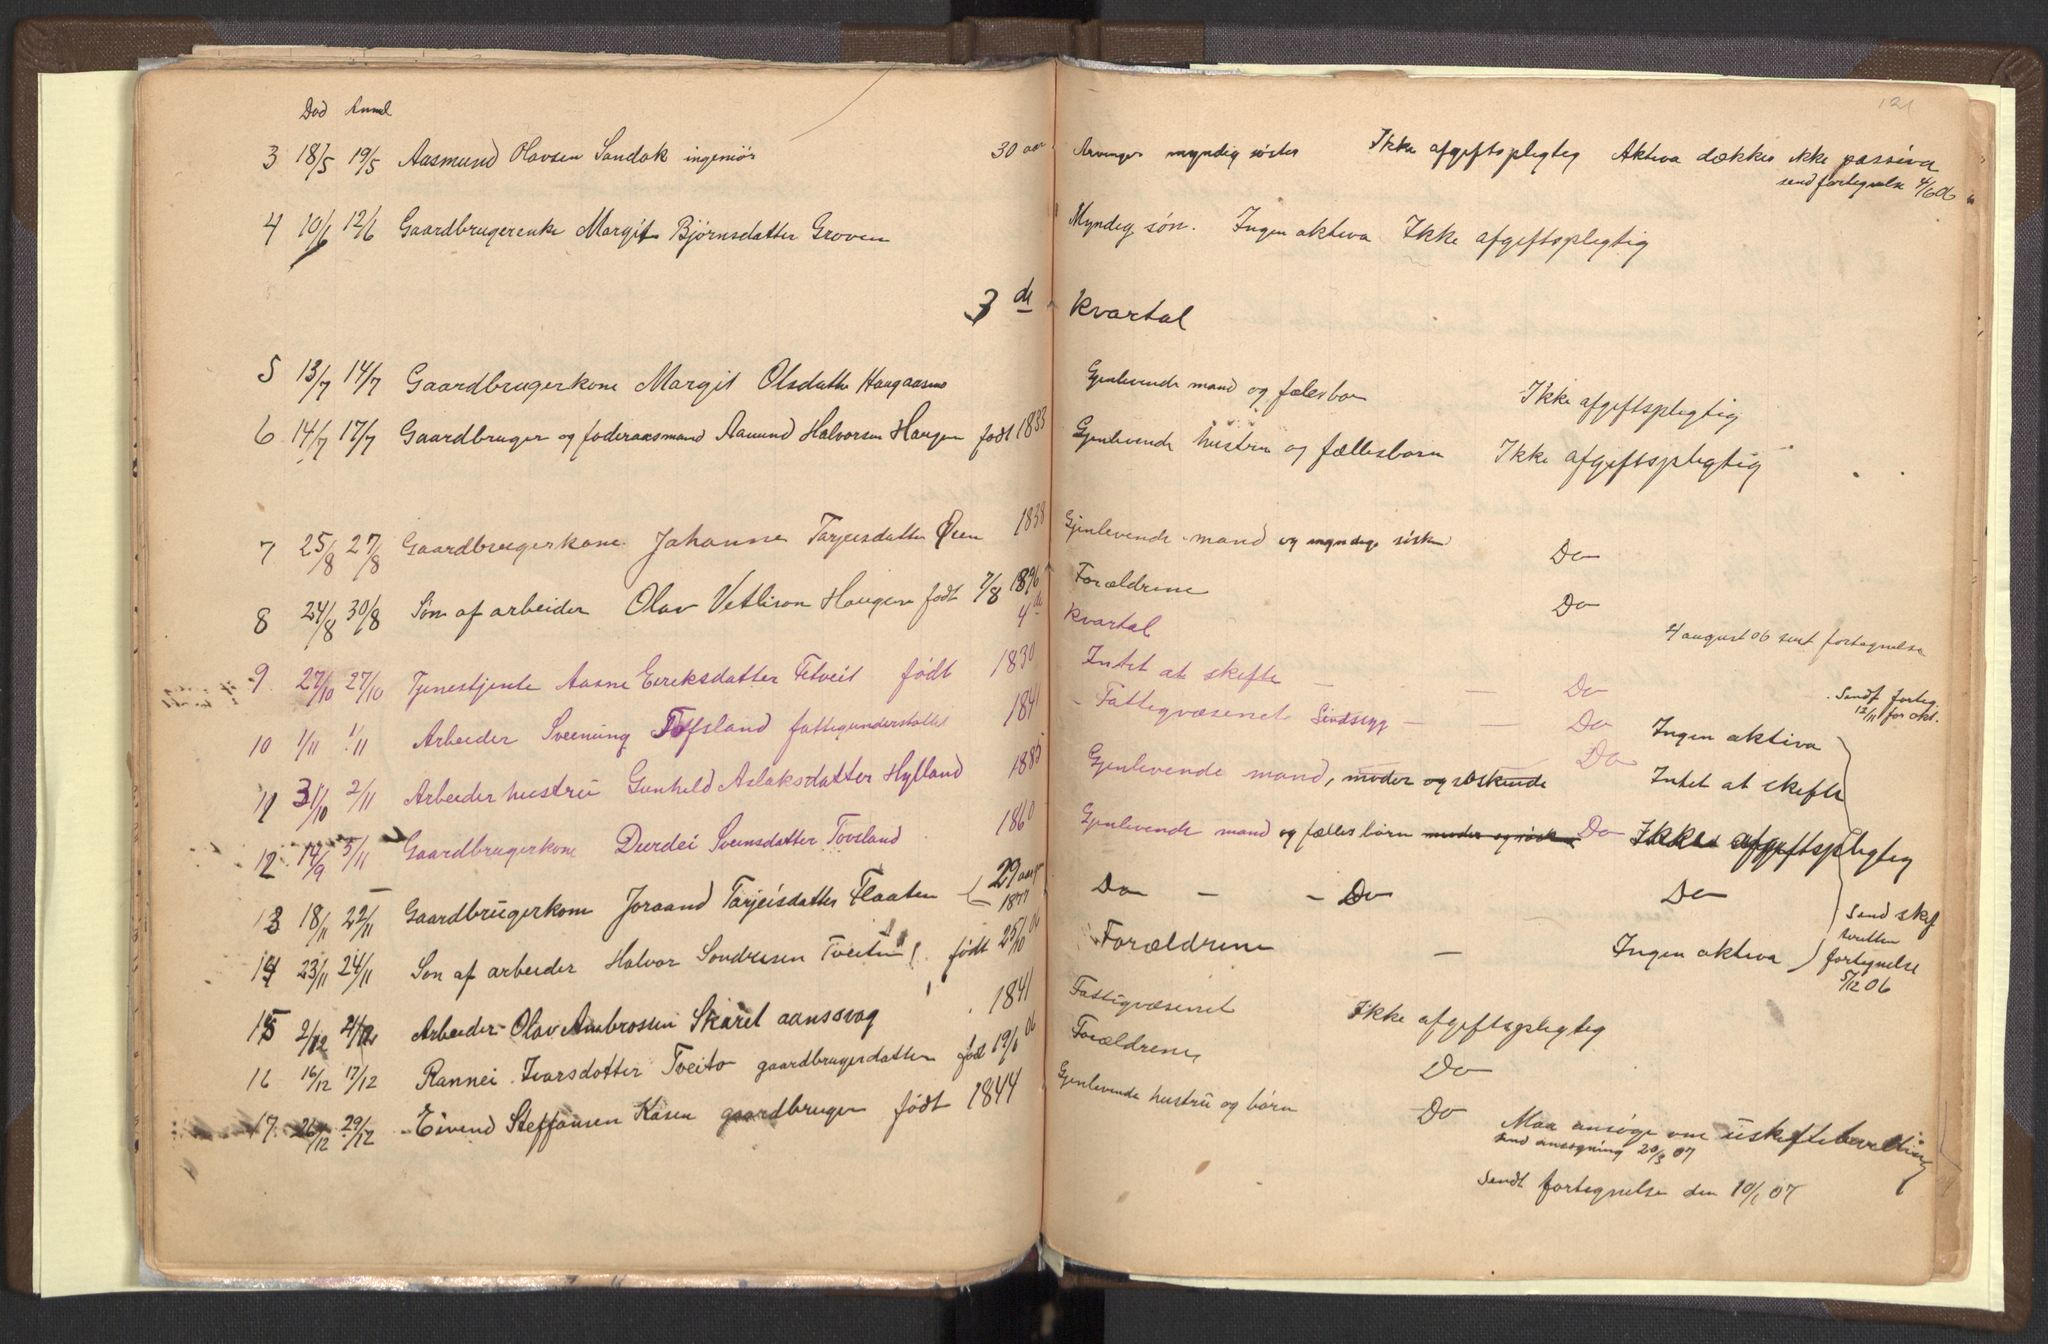 121
Død Anml
3 18/5 19/5 Aasmund Olavsen Sandok ingeniør 30 aar Arvinger myndig søster Ikke afgiftspligtig Aktiva dækker ikke passiva
send fortegnelse 4/6 06
4 10/6 12/6 Gaardbrugerenke Margit Bjørnsdatter Groven Myndig søn. Ingen aktiva Ikke afgiftspligtig
3 de kvartal
5 13/7 14/7 Gaardbrugerkone Margit Olsdatter Haugaasene Gjenlevende mand og følesbørn Ikke afgiftspligtig
6 14/7 17/7 Gaardbruger og føderaadsmand Aanund Halvorsen Haugen født 1833 Gjenlevende hustru og fællesbørn Ikke afgiftspligtig
7 25/8 27/8 Gaardbrugerkone Johanne Tarjeisdatter Øien 1838 Gjenlevende mand og myndige søsken Do
8 24/8 30/8 Søn af arbeider Olav Vetlison Haugen født 7/8 1896 Forældrene Do
4 de kvartal
4 august 06 sent fortegnelse
9 27/10 27/10 Tjenestjente Aasne Eireksdatter Fetveit født 1830 Intet at skifte — — Do
Sendt forteg. 12/11 for okt.
10 1/11 1/11 Arbeider Sveinung Tofsland fattigunderstøttet 1841 - Fattigvæsenet Sindssyg — — Do Ingen aktiva
11 31/10 2/11 Arbeider hustru Gunhild Aslaksdatter Hylland 1885 Gjenlevende mand, moder og søskende Do Intet at skifte
12 14/9 5/11 Gaardbrugerkone Durdei Sveinsdatter Tovsland 1860 Gjenlevende mand og fælles børn Do Ikke afgiftspligtig
13 18/11 22/11 Gaardbrugerkone Joraand Tarjeisdatter Flaaten 29 aar 1877 Do — - Do Do
Send skif
tretten
fortegnelse
5/12 06
14 23/11 24/11 Søn af arbeider Halvor Sondresen Tveiten født 25/10 06 Forældrene — Ingen aktiva
15 2/12 4/12 Arbeider Olav Ambrossen Skaret aanssvag 1841 Fattigvæsenet Ikke afgiftspligtig
16 16/12 17/12 Rannei Ivarsdotter Tveito gaardbrugerdatter fød 19/6 06 Forældrene Do
17 26/12 29/12 Eivend Steffansen Kåsen gaardbruger født 1844 Gjenlevende hustru og børn Do Maa ansøge om uskiftebevilling
send ansøgning 20/3 07
Sendt fortegnelse den 10/1 07